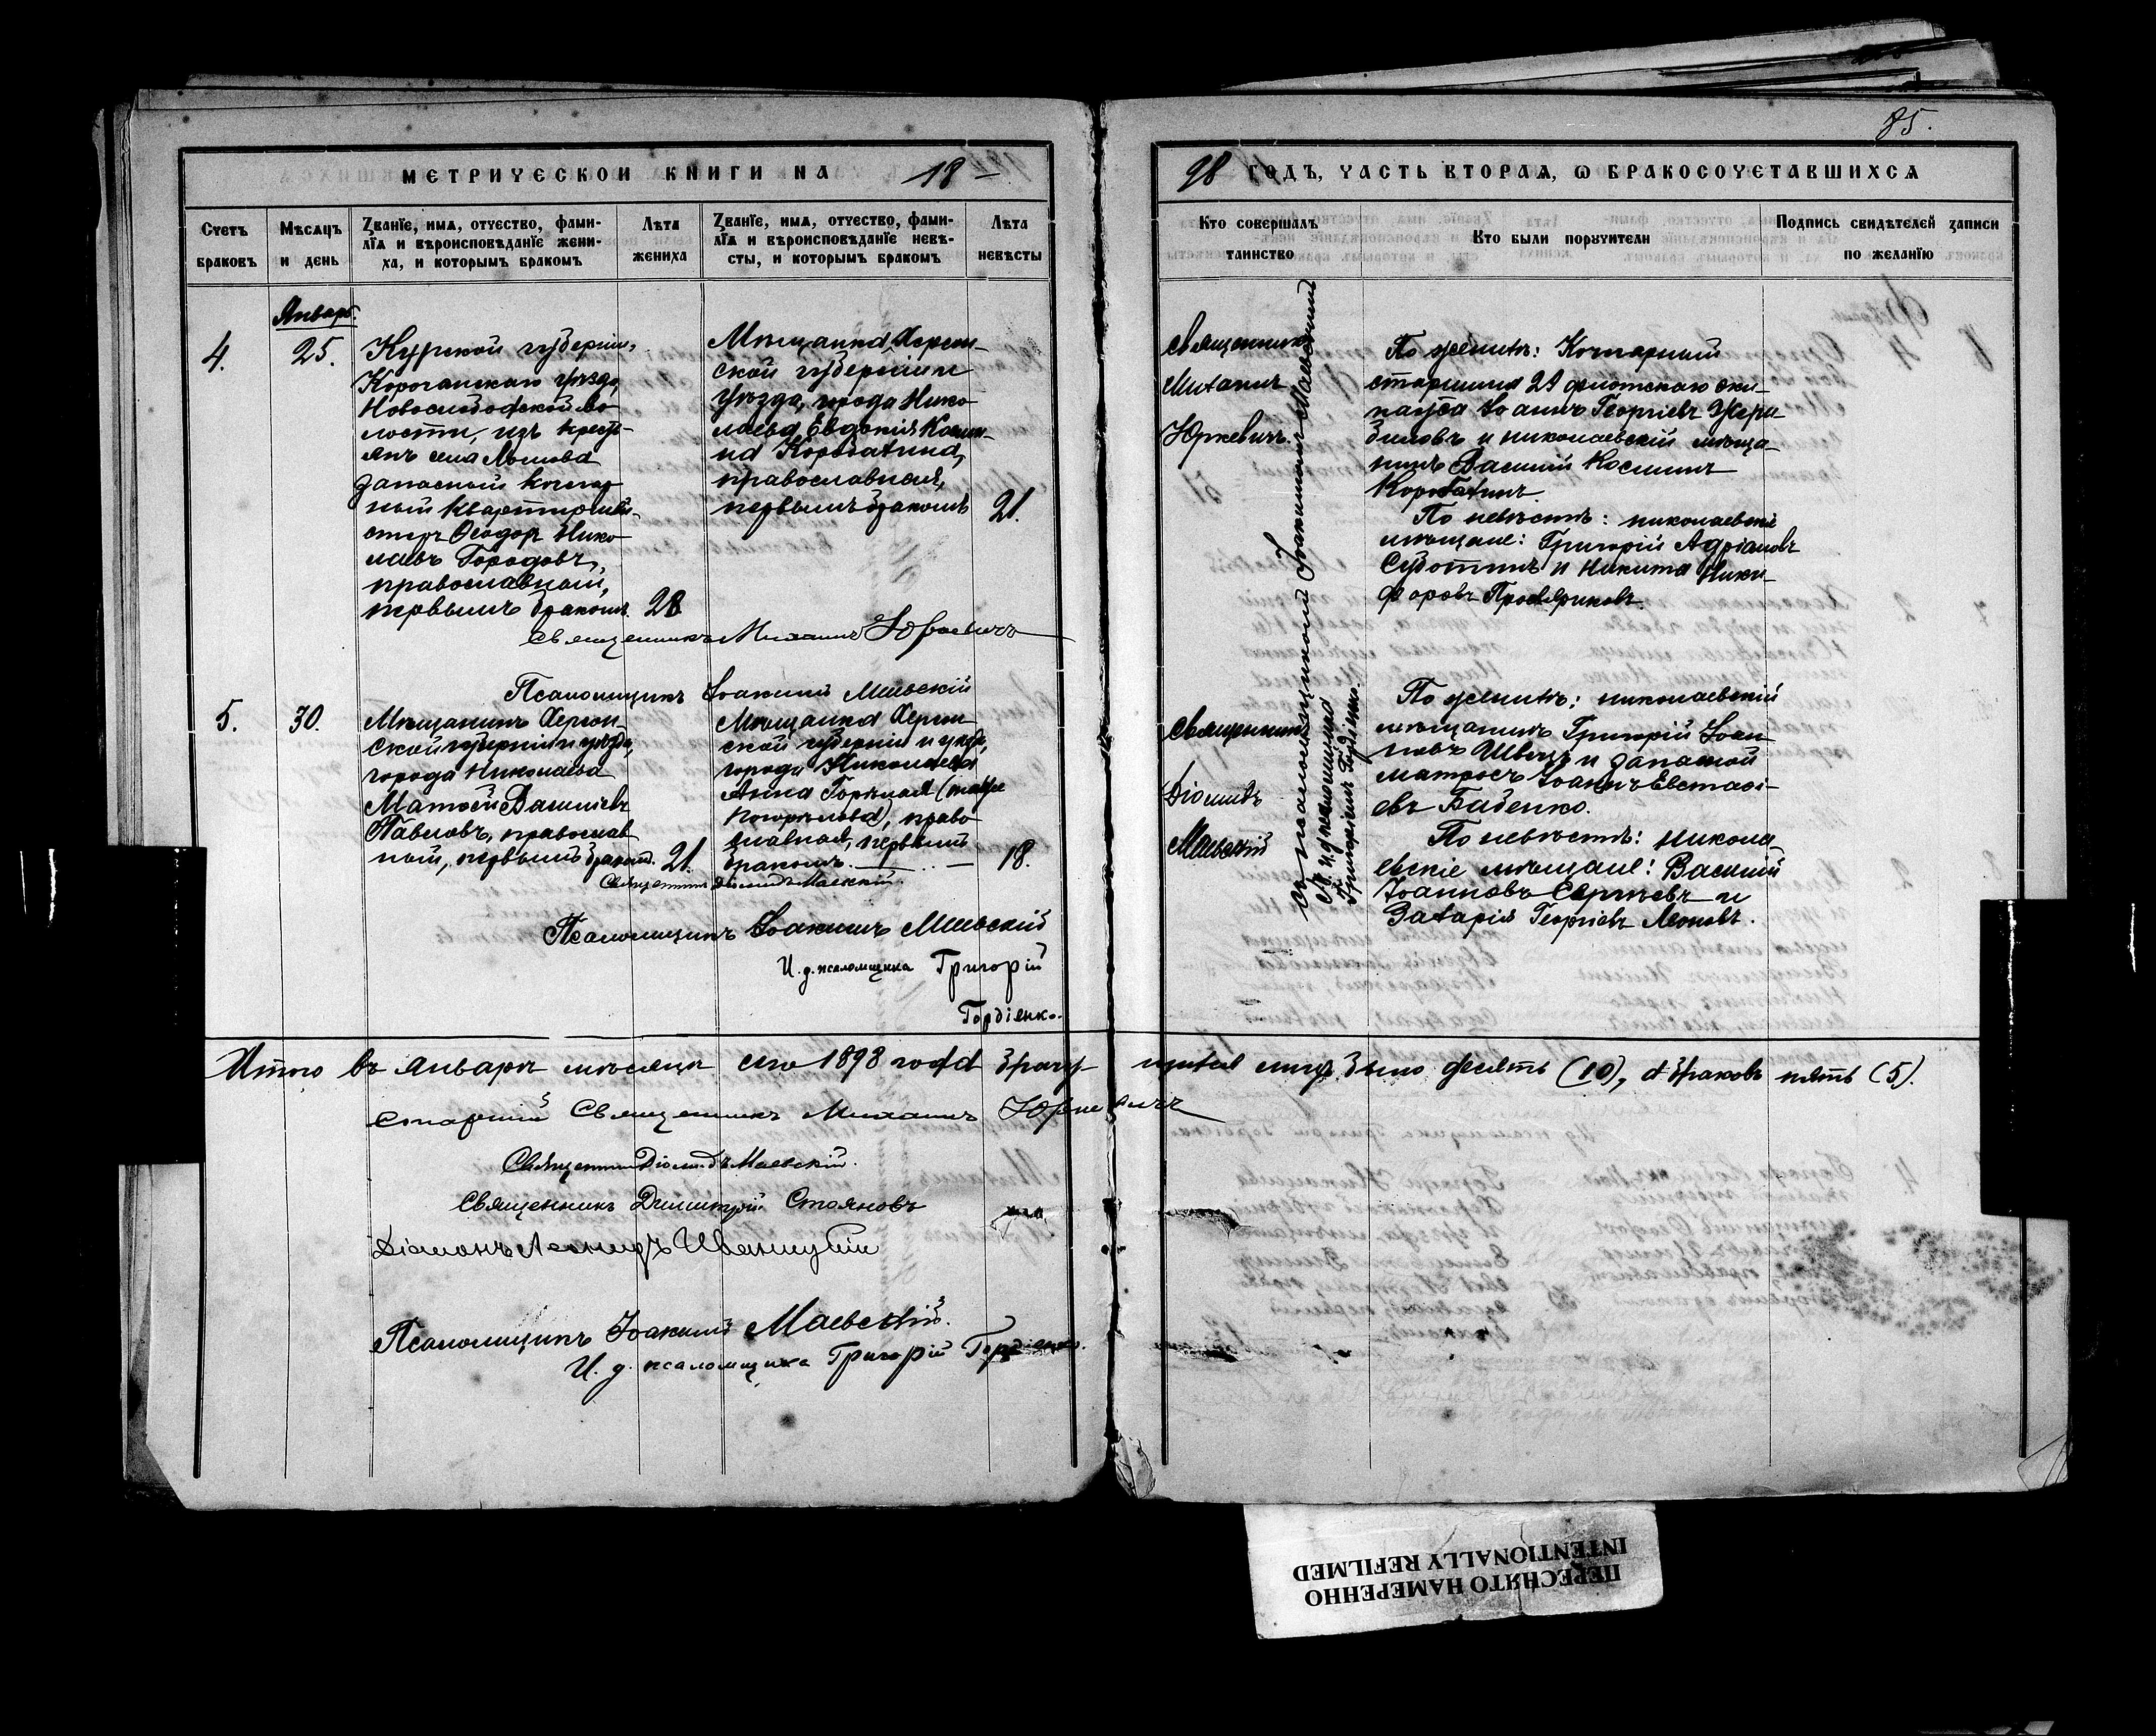 85.
МЕТРИЧЕСКОЙ КНИГИ НА 18
98 ГОДЪ, ЧАСТЬ ВТОРАѦ, Ѡ БРАКОСОЧЕТАВШИХСѦ
Счетъ браковъ
Мѣсѧцъ и день
Званїе, имѧ, отчество, фами-
лїѧ и вѣроисповѣданїе жени-
ха, и которымъ бракомъ
Лѣта жениха
Званїе, имѧ, отчество, фами-
лїѧ и вѣроисповѣданїе невѣ-
сты, и которымъ бракомъ
Лѣта невѣсты
Кто совершалъ таинство
Кто были поручители
Подпись свидѣтелей записи
по желанїю
Январь.
4.
25.
Курской губерніи,
Корочанскаго уѣзда,
Новослободской во-
лости, изъ кресть-
янъ села
запасный кочегар
ный квартирмей-
стеръ Ѳеодоръ Нико
лаевъ Городовъ,
православный,
первымъ бракомъ.
28
Мѣщанка Херсон-
ской губерніи и
уѣзда, города Нико
лаева Евдокія Косми-
на Коробкина,
православная,
первымъ бракомъ
21.
Священникъ
Михаилъ
Юркевичъ
По женихѣ: Кочегарный
старшина 28 флотскаго эки-
пажа Іоаннъ Георгіевъ
и николаевскій мѣща-
нинъ Василій Косминъ
По невѣстѣ: николаевскіе
мѣщане: Григорій Адріановъ
Суботинъ и Никита Ники-
форовъ
Священникъ Михаилъ Юркевичъ
Псаломщикъ Іоакимъ Маевскій
5.
30.
Мѣщанинъ Херсон
ской губерніи и уѣзда,
города Николаева
Матѳей Василіевъ
Павловъ, православ
ный, первымъ бракомъ.
21.
Мѣщанка Херсон
ской губерніи и уѣзда,
города Николаева
Анна Горѣлая (она же
Погорѣлова), право
славная, первымъ
бракомъ.
18.
Священникъ
Діомидъ
Маевскій
съ псаломщикомъ Іоакимомъ Маевскимъ
и. д. псаломщика
Григоріемъ Гордіенко.
По женихѣ: николаевскій
мѣщанинъ Григорій Іоан
новъ Швецъ и запасной
матросъ Іоаннъ Евстаѳі-
евъ Баденко.
По невѣстѣ: никола
евскіе мѣщане: Василій
Іоанновъ Сергѣевъ и
Захарія Георгіевъ Леоновъ.
Священникъ Діомидъ Маевскій.
Псаломщикъ Іоакимъ Маевскій
И. д. псаломщика Григорій
Гордіенко.
Итого въ январѣ мѣсяцѣ сего 1898 года брачу щихся лицъ было десять (10), а браковъ пять (5).
Старшій Священникъ Михаилъ Юркевичъ
Священникъ Діомидъ Маевскій.
Священникъ Димитрій Стояновъ
Діаконъ Леонидъ
Псаломщикъ Іоакимъ Маевскій.
И. д. псаломщика Григорій Гордіенко.
ПЕРЕСНЯТО НАМЕРЕННО
INTENTIONALLY REFILMED